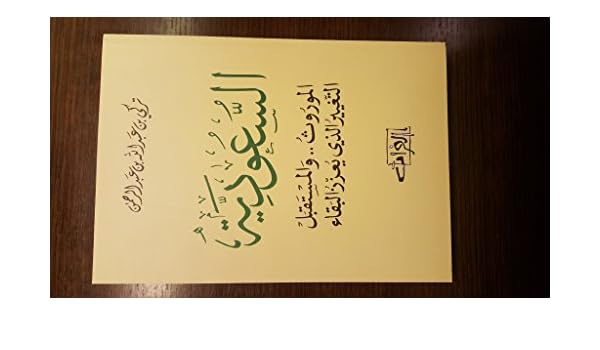 تركي بن عبد الله بن عبد الرحمن
السَّعُودِيَّةُ
الموروثُ .. والمُسْتَقبل
التغييرُ الذي يُعزّزُ البَقاء
الفرات